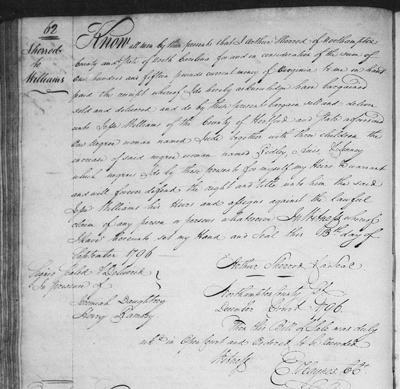 62
Sherrod
to
Williams
Know all men by these presents that I Arthur Sherrod of Northampton
County and State of North Carolina for and in consideration of the sum of
One hundred and fifteen pounds current money of Virginia to me in hand
paid the receipt whereof I do hereby acknowledge have bargained
sold and delivered and do by these presents bargain sell and deliver
unto Jesse Williams of the County of Hertford and State aforesaid
One Negroe woman named together with three children the
increase of said negroe woman named
which negroes I do by these presents for myself my Heirs &c warrant
and will forever defend the right and title unto him the said
Jesse Williams his Heirs and assigns against the lawful
claim of any person or persons whatsoever In Witness whereof
I have hereunto set my Hand and Seal this day of
September 1796
Signed Sealed & delivered
In presence of
Jeremiah Daughtry
Henry
Arthur Sherrod Seal
Northampton County
December Court 1796
Then this Bill of Sale was duly
in Open Court and Ordered to be recorded
Witness
E Haynes CC